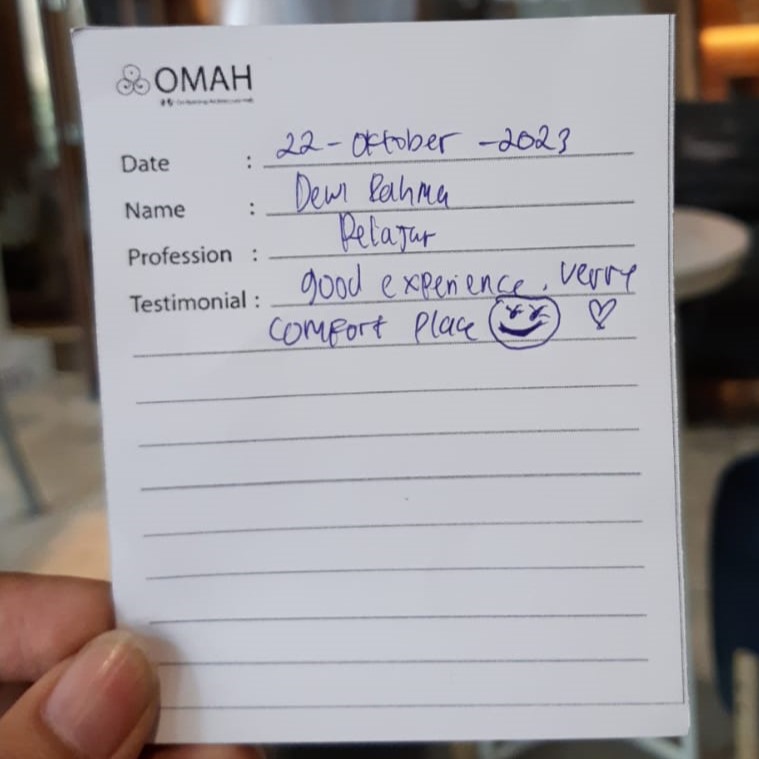 OMAH
Date : 22 - Oktober - 2023
Name : Dewi Rahma
Profession : Pelajar
Testimonial : good experience, verry
comfort place